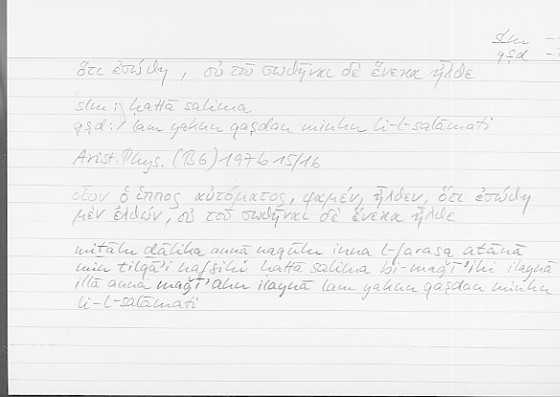 slm
qṣd
ὅτι ἐσώθη, οὐ τοῦ σωθῆναι δὲ ἕνεκα ἦλθε
slm: ḥattā salima
qṣd: lam yakun qaṣdan minhu li-l-salāmati
Arist. Phys. (B6) 197b 15/16
οἷον ὁ ἵππος αὐτόματος, φαμέν, ἦλθεν, ὅτι ἐσώθη
μὲν ἐλθών, οὐ τοῦ σωθῆναι δὲ ἕνεκα ἦλθε
miṯālu ḏālika annā naqūlu inna l-farasa atānā
min tilqāʾi nafsihī ḥattā salima bi-maǧīʾihi ilaynā
illā anna maǧīʾahu ilaynā lam yakun qaṣdan minhu
li-l-salāmati